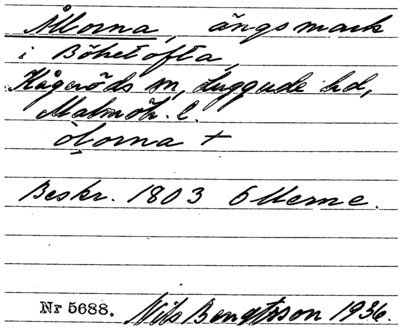 Ållorna, ängsmark
i Böketofta,
Kågeröds sn, Luggude hd,
Malmöh. l.
ölorna +
Beskr. 1803 Ollerne.
Nr 5688. Nils Bengtsson 1936.